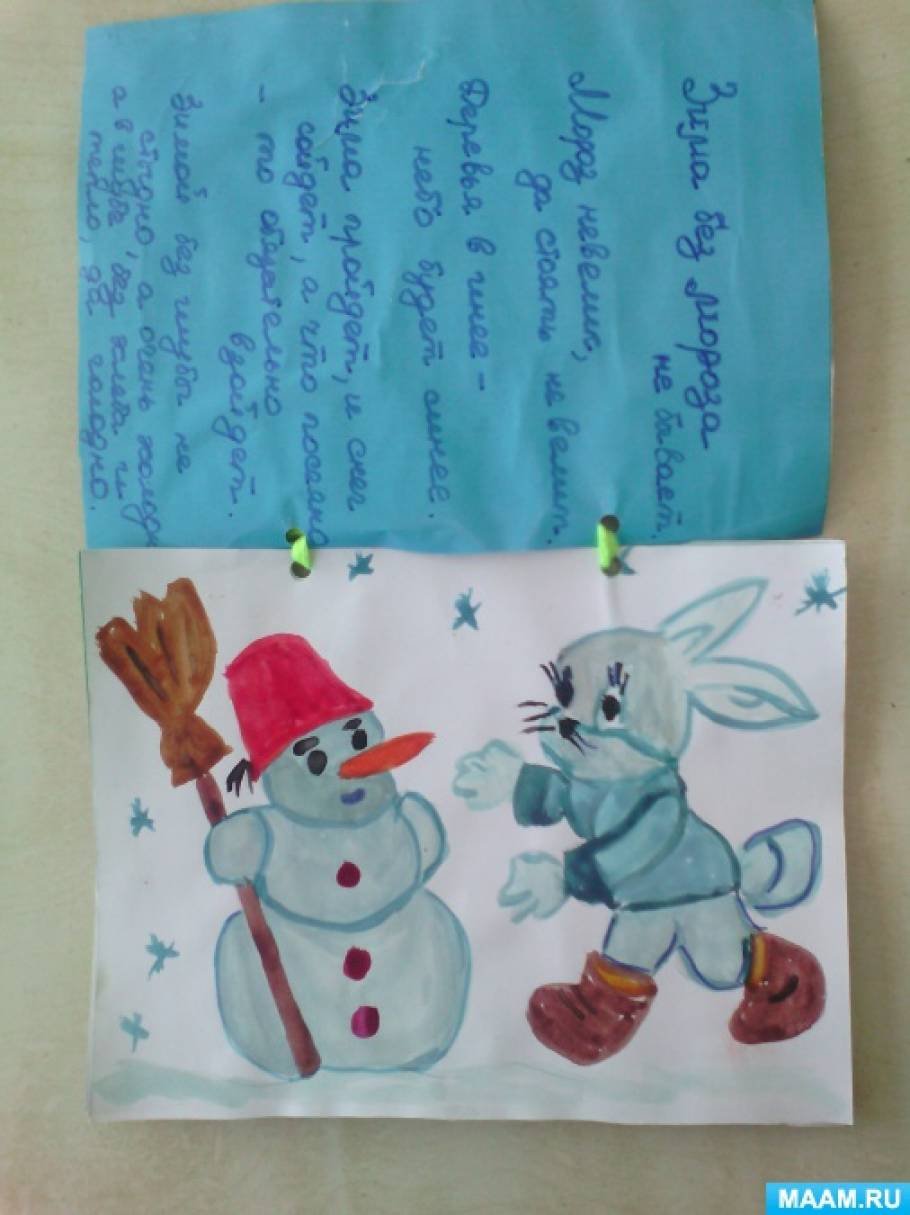 Зима без мороза
не бывает.
Мороз невелик,
да стоять не велит.
Деревья в инее -
небо будет синее.
Зима пройдет, и снег
сойдет, а что посеяно
- то обязательно
взойдет.
Зимой без шубы не
стыдно, а очень холодн
а в шубе, без хлеба и
тепло, да голодно.
MAAM.RU